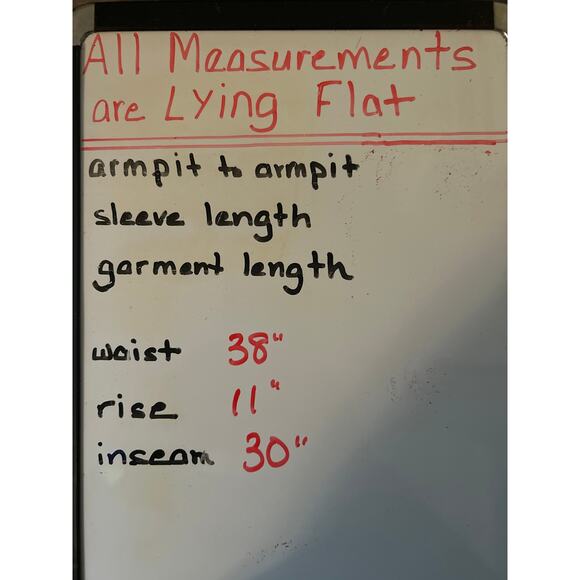 All Measurements
are Lying Flat
armpit to armpit
sleeve length
garment length
waist 38"
rise 11"
inseam 30"